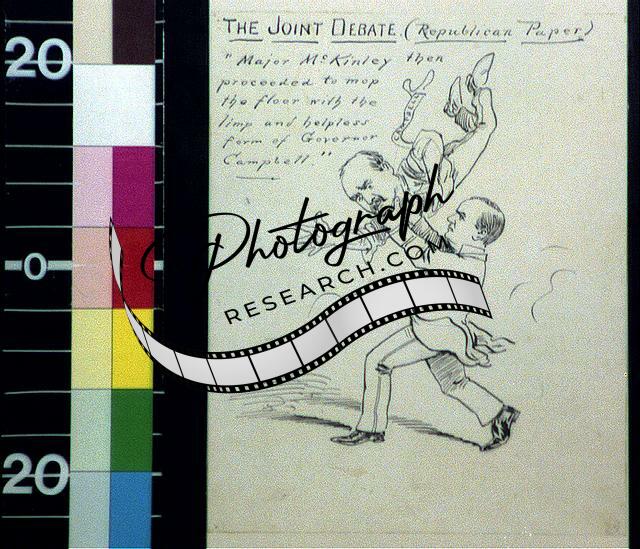 THE JOINT DEBATE. (Republican Paper)
"Major McKinley then
proceeded to mop
the floor with the
limp and helpless
form of Governor
Campbell"
Photograph
RESEARCH.COM
20
0
20